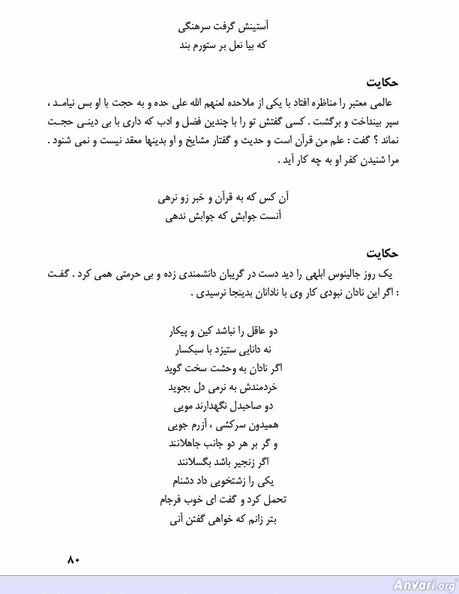 آستینش گرفت سرهنگی
که بیا نعل بر ستورم بند
حکایت
عالمی معتبر را مناظره افتاد با یکی از ملاحده لعنهم الله علی حده و به حجت با او بس نیامـد ،
سپر بینداخت و برگشت . کسی گفتش تو را با چندین فضل و ادب که داری با بی دینـی حجـت
نماند ؟ گفت : علم من قرآن است و حدیث و گفتار مشایخ و او بدینها معقد نیست و نمی شنود .
مرا شنیدن کفر او به چه کار آید .
آن کس که به قرآن و خبر زو نرهی
آنست جوابش که جوابش ندهی
حکایت
یک روز جالینوس ابلهی را دید دست در گریبان دانشمندی زده و بی حرمتی همی کرد . گفـت
: اگر این نادان نبودی کار وی با نادانان بدینجا نرسیدی .
دو عاقل را نباشد کین و پیکار
نه دانایی ستیزد با سبکسار
اگر نادان به وحشت سخت گوید
خردمندش به نرمی دل بجوید
دو صاحبدل نگهدارند مویی
همیدون سرکشی ، آزرم جویی
و گر بر هر دو جانب جاهلانند
اگر زنجیر باشد بگسلانند
یکی را زشتخویی داد دشنام
تحمل کرد و گفت ای خوب فرجام
بتر زانم که خواهی گفتن آنی
۸۰
Anvari.org